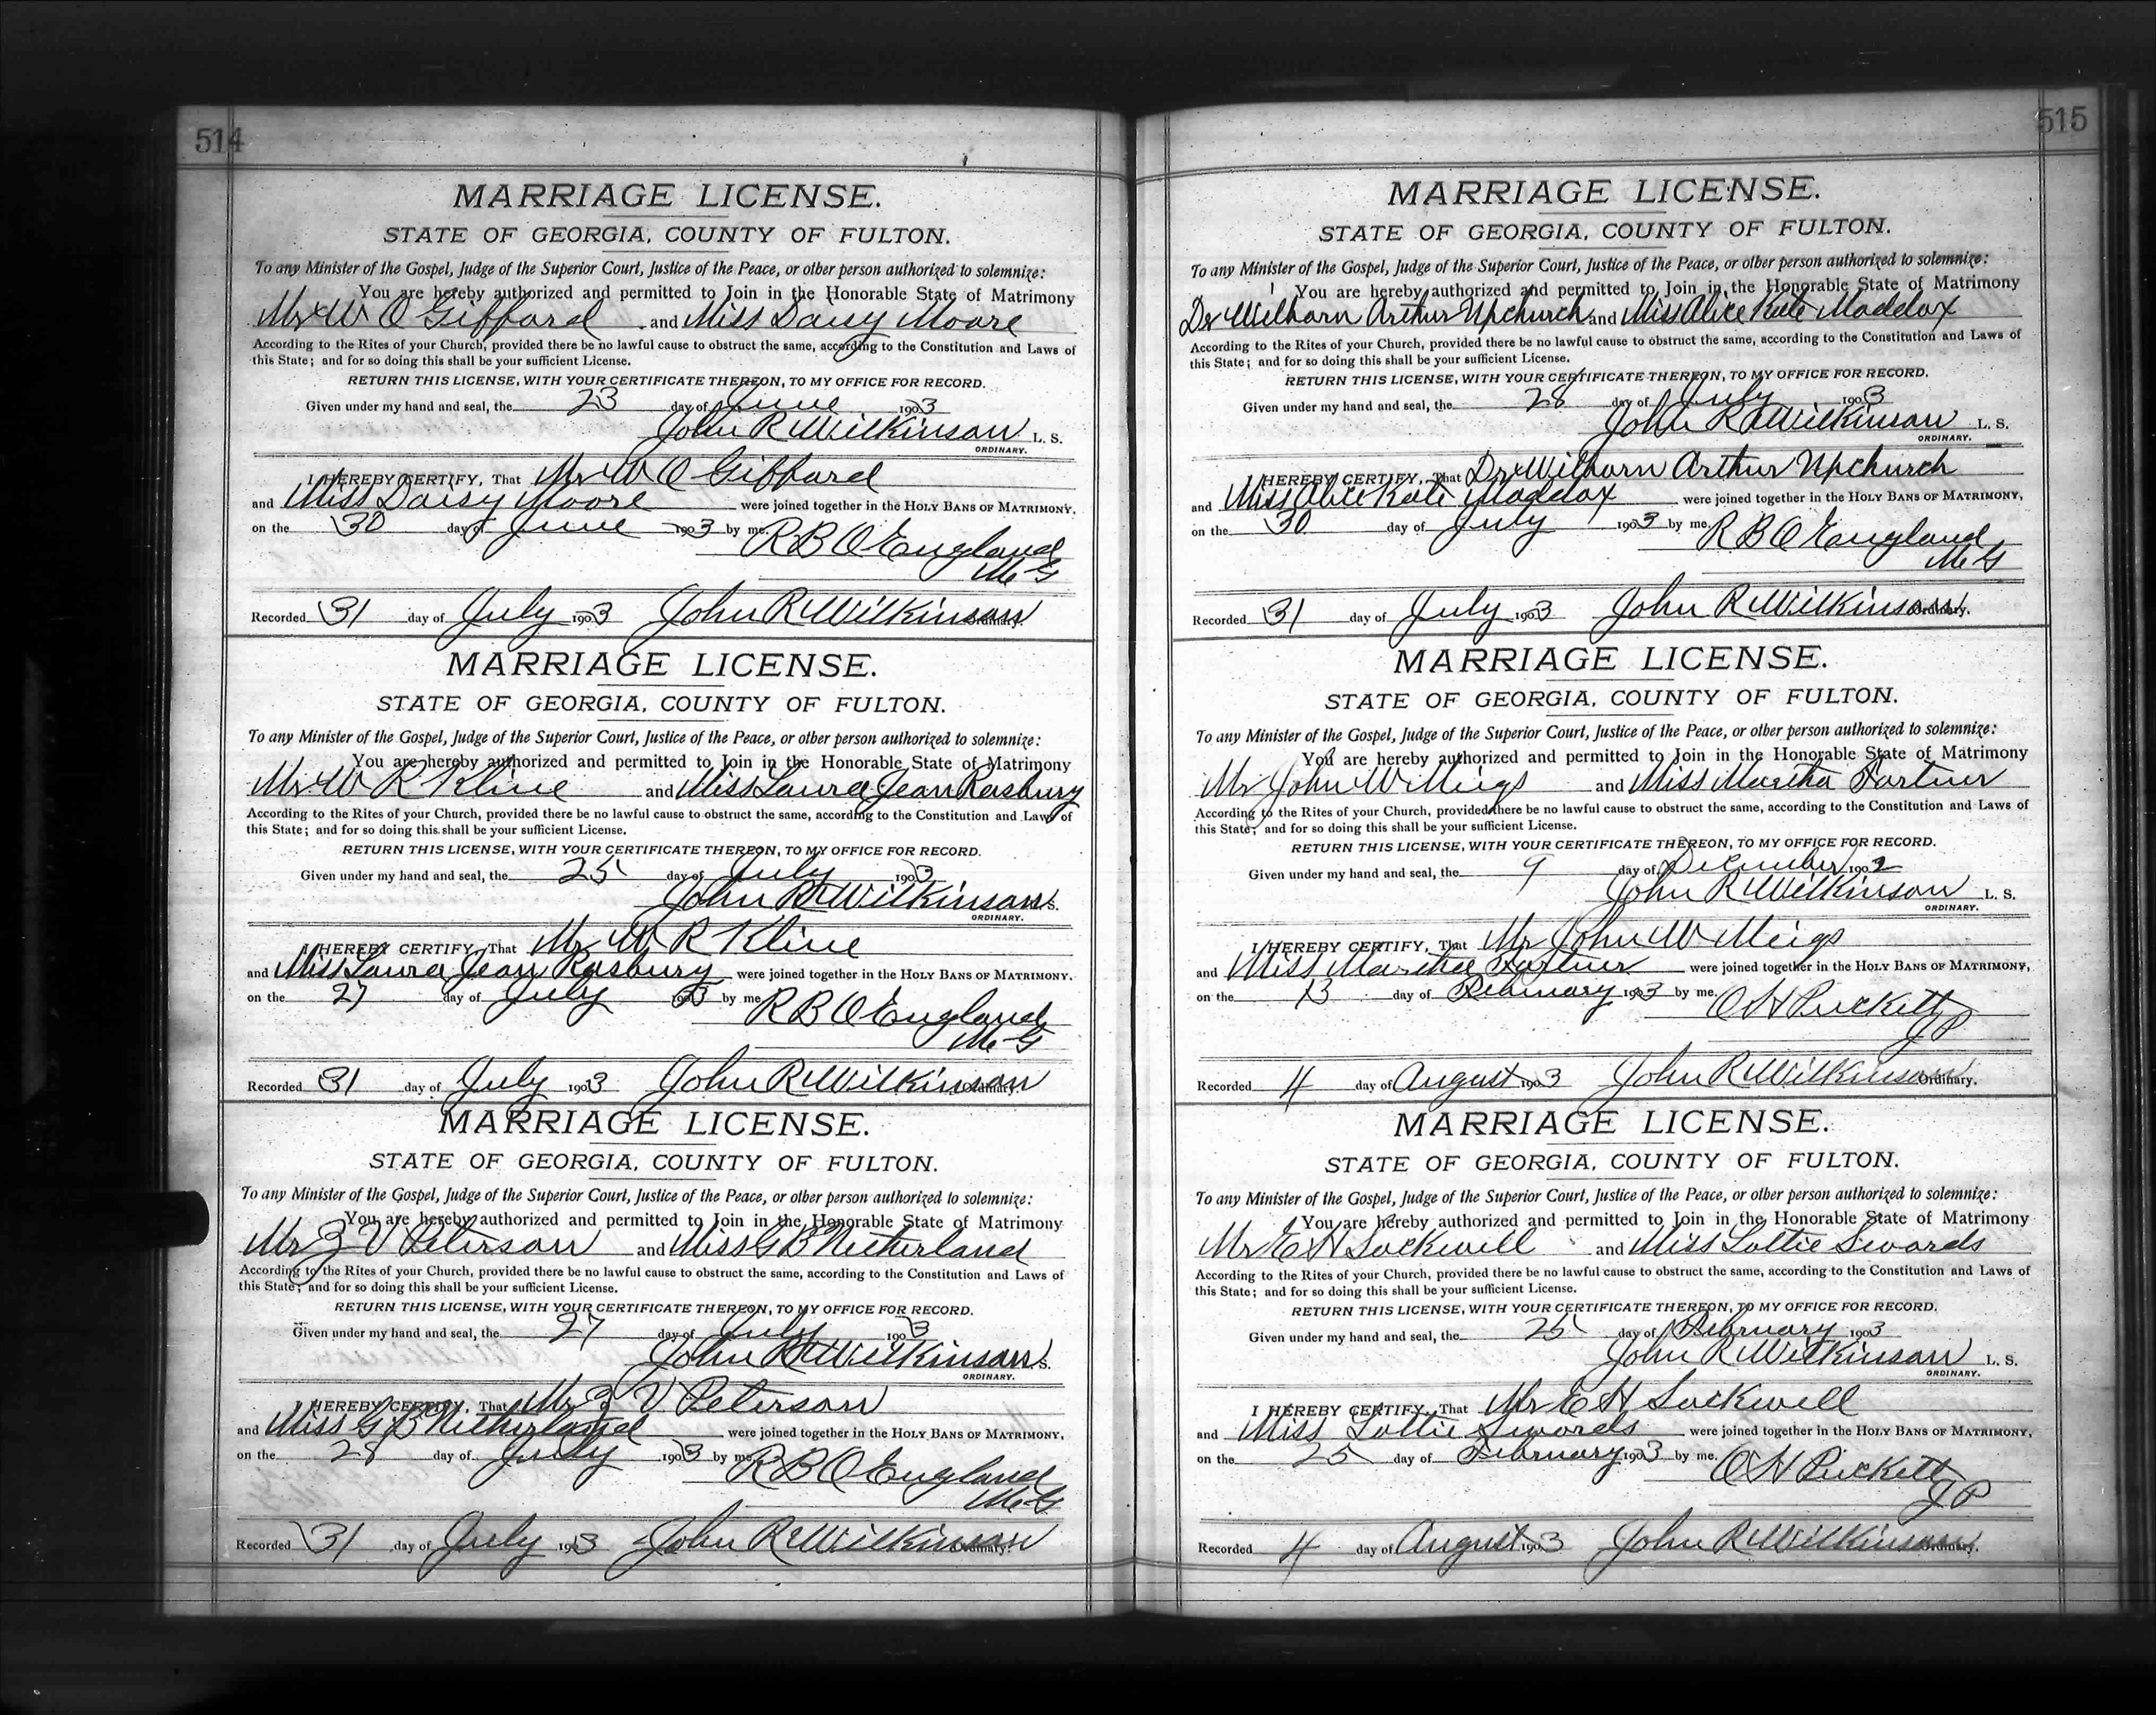 514
MARRIAGE LICENSE.
STATE OF GEORGIA, COUNTY OF FULTON.
To any Minister of the Gospel, Judge of the Superior Court, Justice of the Peace, or other person authorized to solemnize:
You are hereby authorized and permitted to Join in the Honorable State of Matrimony
Mr W O Giffard and Miss Daisy Moore
According to the Rites of your Church, provided there be no lawful cause to obstruct the same, according to the Constitution and Laws of
this State; and for so doing this shall be your sufficient License.
RETURN THIS LICENSE, WITH YOUR CERTIFICATE THEREON, TO MY OFFICE FOR RECORD.
Given under my hand and seal, the 23 day of June 1903
John R Wilkinson L. S.
ORDINARY.
I HEREBY CERTIFY, That Mr W O Giffard
and Miss Daisy Moore were joined together in the HOLY BANS OF MATRIMONY,
on the 30 day of June 1903 by me. R B O England
M G
Recorded 31 day of July 1903 John R Wilkinson Ordinary.
MARRIAGE LICENSE.
STATE OF GEORGIA, COUNTY OF FULTON.
To any Minister of the Gospel, Judge of the Superior Court, Justice of the Peace, or other person authorized to solemnize:
You are hereby authorized and permitted to Join in the Honorable State of Matrimony
Mr W R Kline and Miss Laura Jean Rasbury
According to the Rites of your Church, provided there be no lawful cause to obstruct the same, according to the Constitution and Laws of
this State; and for so doing this shall be your sufficient License.
RETURN THIS LICENSE, WITH YOUR CERTIFICATE THEREON, TO MY OFFICE FOR RECORD.
Given under my hand and seal, the 25 day of July 1903
John R Wilkinson L. S.
ORDINARY.
I HEREBY CERTIFY, That Mr W R Kline
and Miss Laura Jean Rasbury were joined together in the HOLY BANS OF MATRIMONY.
on the 27 day of July 1903 by me R B O England
M G
Recorded 31 day of July 1903 John R Wilkinson Ordinary.
MARRIAGE LICENSE.
STATE OF GEORGIA, COUNTY OF FULTON.
To any Minister of the Gospel, Judge of the Superior Court, Justice of the Peace, or other person authorized to solemnize:
You are hereby authorized and permitted to Join in the Honorable State of Matrimony
Mr Z V Peterson and Miss G B Netherland
According to the Rites of your Church, provided there be no lawful cause to obstruct the same, according to the Constitution and Laws of
this State; and for so doing this shall be your sufficient License.
RETURN THIS LICENSE, WITH YOUR CERTIFICATE THEREON, TO MY OFFICE FOR RECORD.
Given under my hand and seal, the 27 day of July 1903
John R Wilkinson L. S.
ORDINARY.
I HEREBY CERTIFY, That Mr Z V Peterson
and Miss G B Netherland were joined together in the HOLY BANS OF MATRIMONY,
on the 28 day of July 1903 by me R B O England
M G
Recorded 31 day of July 1903 John R Wilkinson Ordinary.
515
MARRIAGE LICENSE.
STATE OF GEORGIA, COUNTY OF FULTON.
To any Minister of the Gospel, Judge of the Superior Court, Justice of the Peace, or other person authorized to solemnize:
You are hereby authorized and permitted to Join in the Honorable State of Matrimony
Dr Wilharn Arthur Upchurch and Miss Alice Kate Maddox
According to the Rites of your Church, provided there be no lawful cause to obstruct the same, according to the Constitution and Laws of
this State; and for so doing this shall be your sufficient License.
RETURN THIS LICENSE, WITH YOUR CERTIFICATE THEREON, TO MY OFFICE FOR RECORD.
Given under my hand and seal, the 28 day of July 1903
John R Wilkinson L. S.
ORDINARY.
I HEREBY CERTIFY, That Dr Wilharn Arthur Upchurch
and Miss Alice Kate Maddox were joined together in the HOLY BANS OF MATRIMONY,
on the 30 day of July 1903 by me. R B O England
M G
Recorded 31 day of July 1903 John R Wilkinson Ordinary.
MARRIAGE LICENSE.
STATE OF GEORGIA, COUNTY OF FULTON.
To any Minister of the Gospel, Judge of the Superior Court, Justice of the Peace, or other person authorized to solemnize:
You are hereby authorized and permitted to Join in the Honorable State of Matrimony
Mr John W Meigs and Miss Martha Fartner
According to the Rites of your Church, provided there be no lawful cause to obstruct the same, according to the Constitution and Laws of
this State; and for so doing this shall be your sufficient License.
RETURN THIS LICENSE, WITH YOUR CERTIFICATE THEREON, TO MY OFFICE FOR RECORD.
Given under my hand and seal, the 9 day of December 1902
John R Wilkinson L. S.
ORDINARY.
I HEREBY CERTIFY, That Mr John W Meigs
and Miss Martha Fartner were joined together in the HOLY BANS OF MATRIMONY,
on the 13 day of February 1903 by me. O H Puckett
J P
Recorded 4 day of August 1903 John R Wilkinson Ordinary.
MARRIAGE LICENSE.
STATE OF GEORGIA, COUNTY OF FULTON.
To any Minister of the Gospel, Judge of the Superior Court, Justice of the Peace, or other person authorized to solemnize:
You are hereby authorized and permitted to Join in the Honorable State of Matrimony
Mr E H Sockwell and Miss Lottie Swords
According to the Rites of your Church, provided there be no lawful cause to obstruct the same, according to the Constitution and Laws of
this State; and for so doing this shall be your sufficient License.
RETURN THIS LICENSE, WITH YOUR CERTIFICATE THEREON, TO MY OFFICE FOR RECORD.
Given under my hand and seal, the 25 day of February 1903
John R Wilkinson L. S.
ORDINARY.
I HEREBY CERTIFY, That Mr E H Sockwell
and Miss Lottie Swords were joined together in the HOLY BANS OF MATRIMONY,
on the 25 day of February 1903 by me. O H Puckett
J P
Recorded 4 day of August 1903 John R Wilkinson Ordinary.